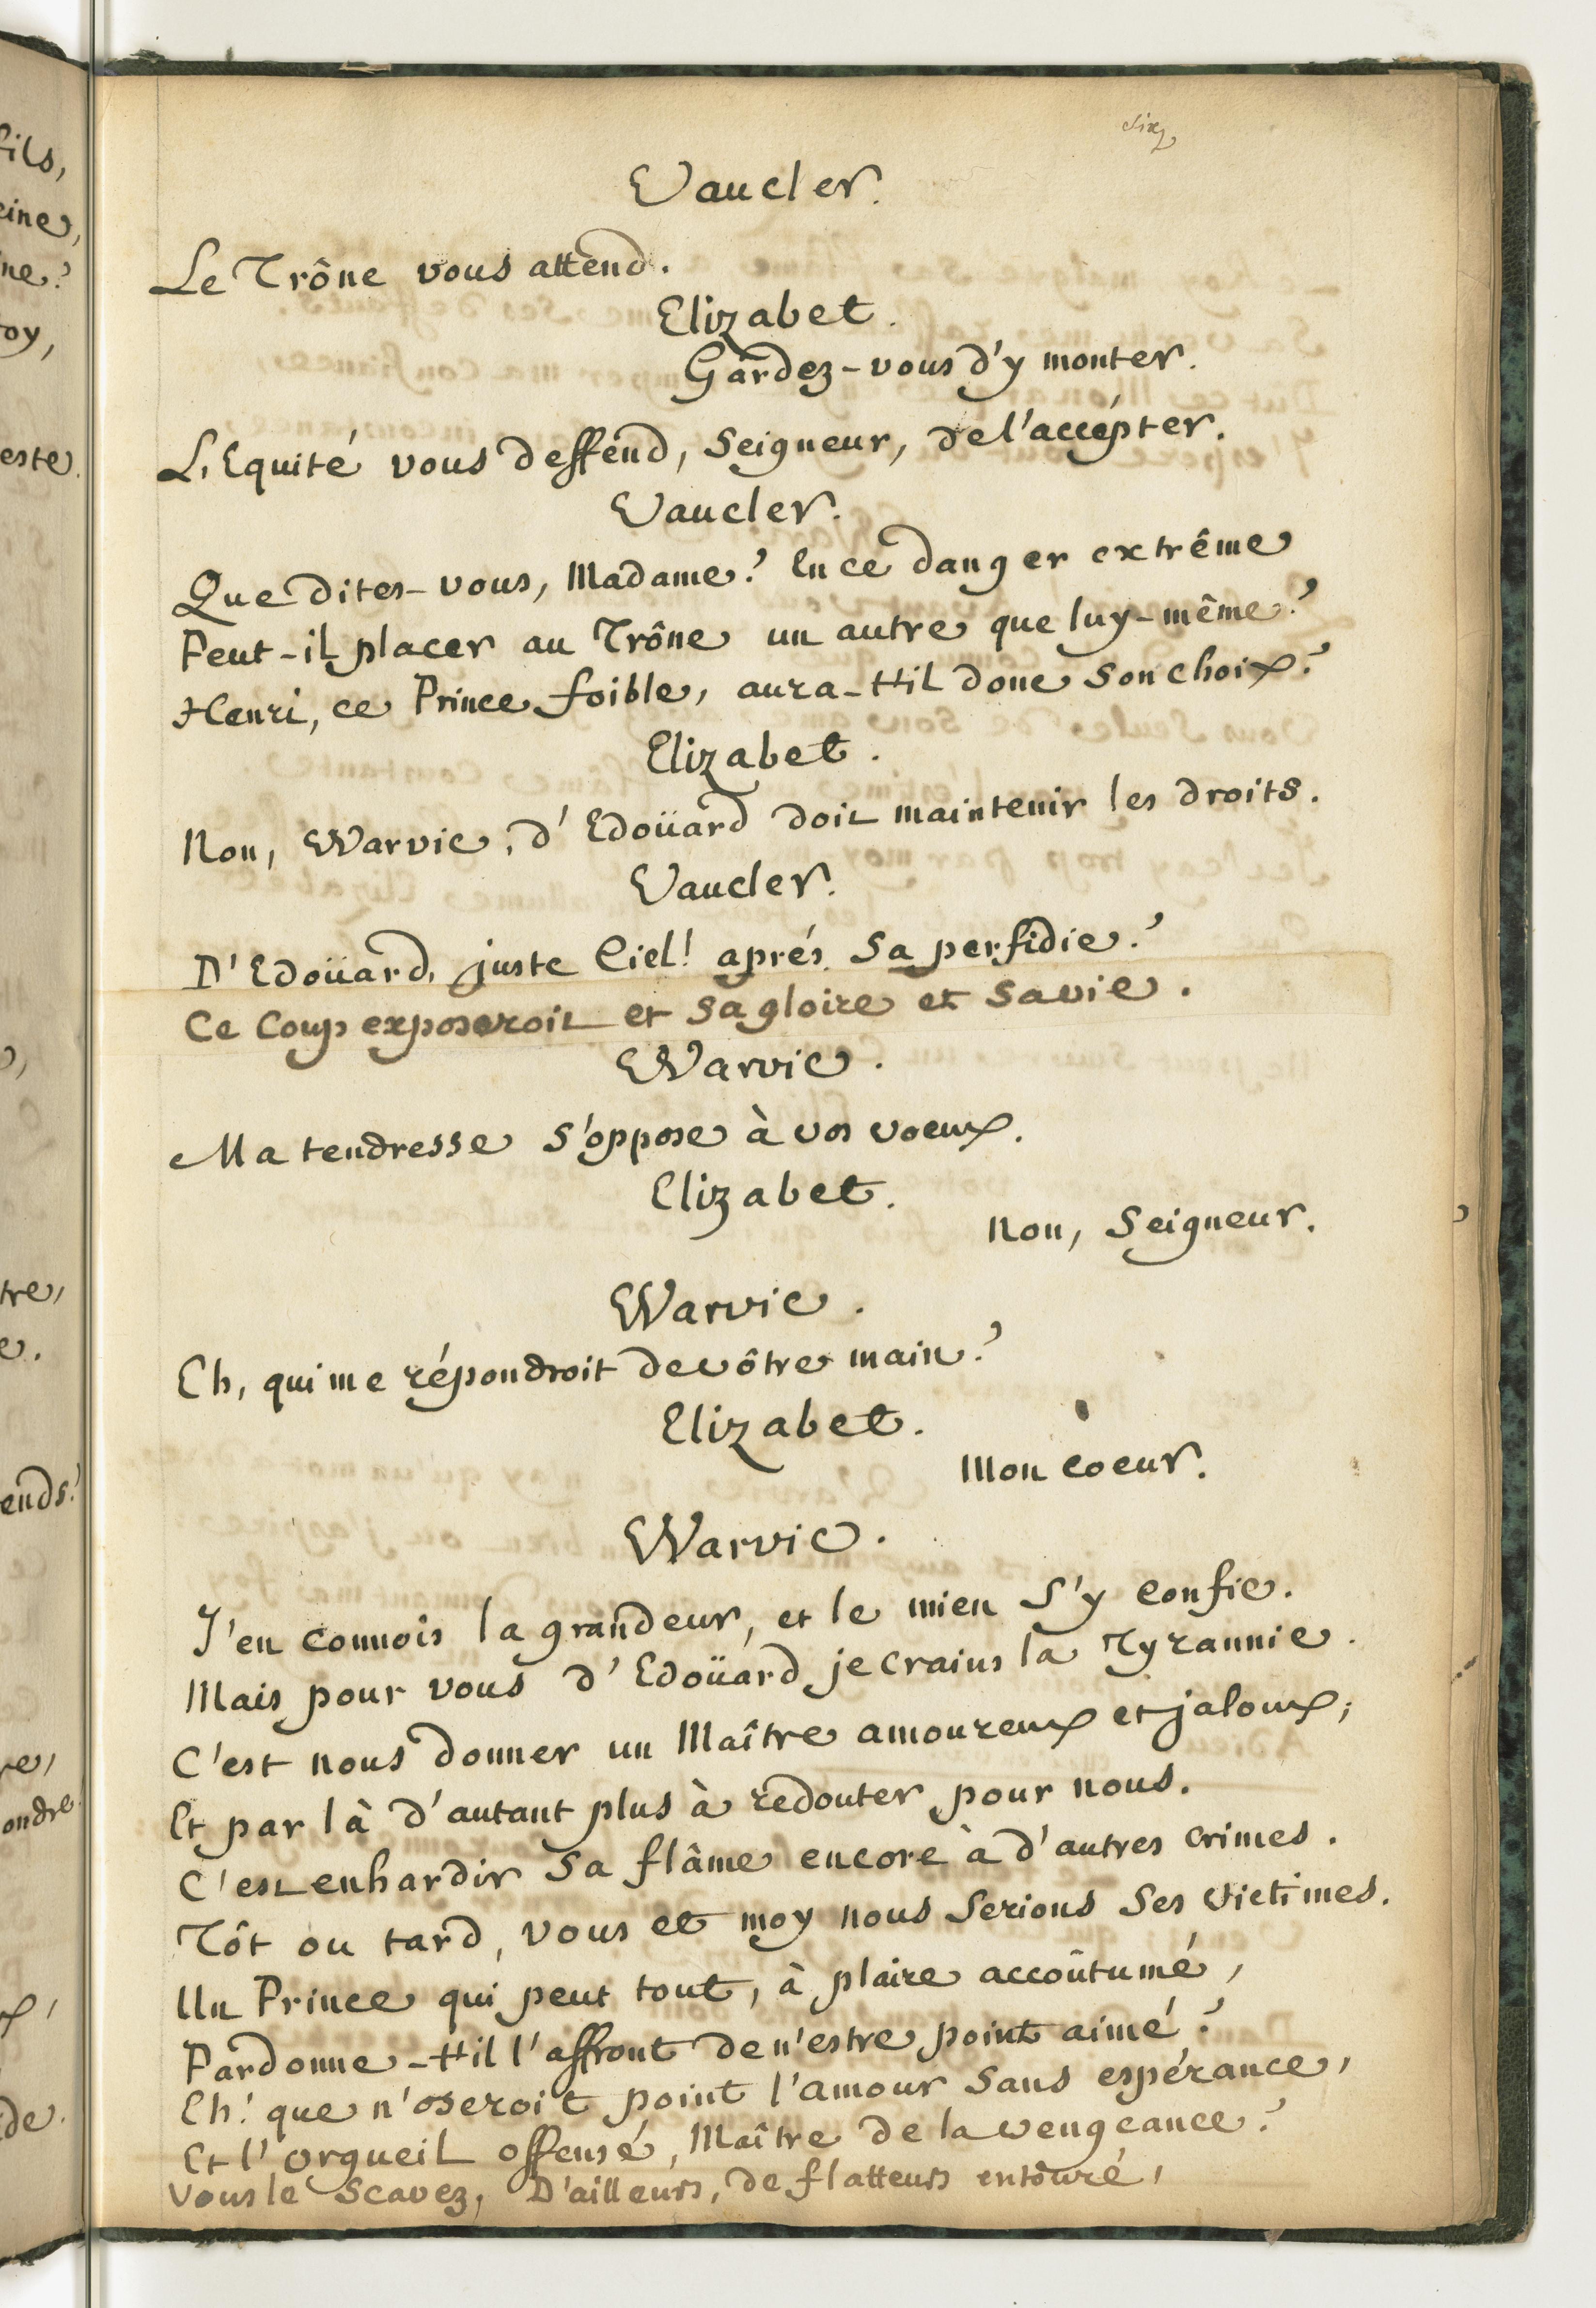 six
Vaucler.
Le Trône vous attend.
Elizabet.
Gardez-vous d'y monter.
L'Equité vous deffend, Seigneur, de l'accépter.
Vaucler.
Que dites-vous, Madame? En ce danger extrême
Peut-il placer au Trône un autre que luy-même?
Henri, ce Prince foible, aura-t-il donc son choix?
Elizabet.
Non, Warvic, d'Edoüard doit maintenir les droits.
Vaucler.
D'Edoüard, juste Ciel! aprés sa perfidie?
Ce Coup exposeroit et sa gloire et sa vie.
Warvic.
Ma tendresse s'oppose à vos voeux.
Elizabet.
Non, Seigneur.
Warvic.
Eh, qui me répondroit de vôtre main?
Elizabet.
Mon coeur.
Warvic.
J'en connois la grandeur, et le mien s'y confie.
Mais pour vous d'Edoüard je crains la Tyrannie.
C'est nous donner un Maître amoureux et jaloux;
Et par là d'autant plus à redouter pour nous.
C'est enhardir sa flâme encore à d'autres crimes.
Tôt ou tard, vous et moy nous serions ses victimes.
Un Prince qui peut tout, à plaire accoûtumé,
Pardonne-t-il l'affront de n'estre point aimé?
Eh! que n'oseroit point l'amour sans espérance,
Et l'orgueil offensé, Maître de la vengeance?
Vous le Scavez, D'ailleurs, de flatteurs entouré,
fils,
eine,
ne?
oy,
este.
tre,
e.
ends?
re,
ondre
de.